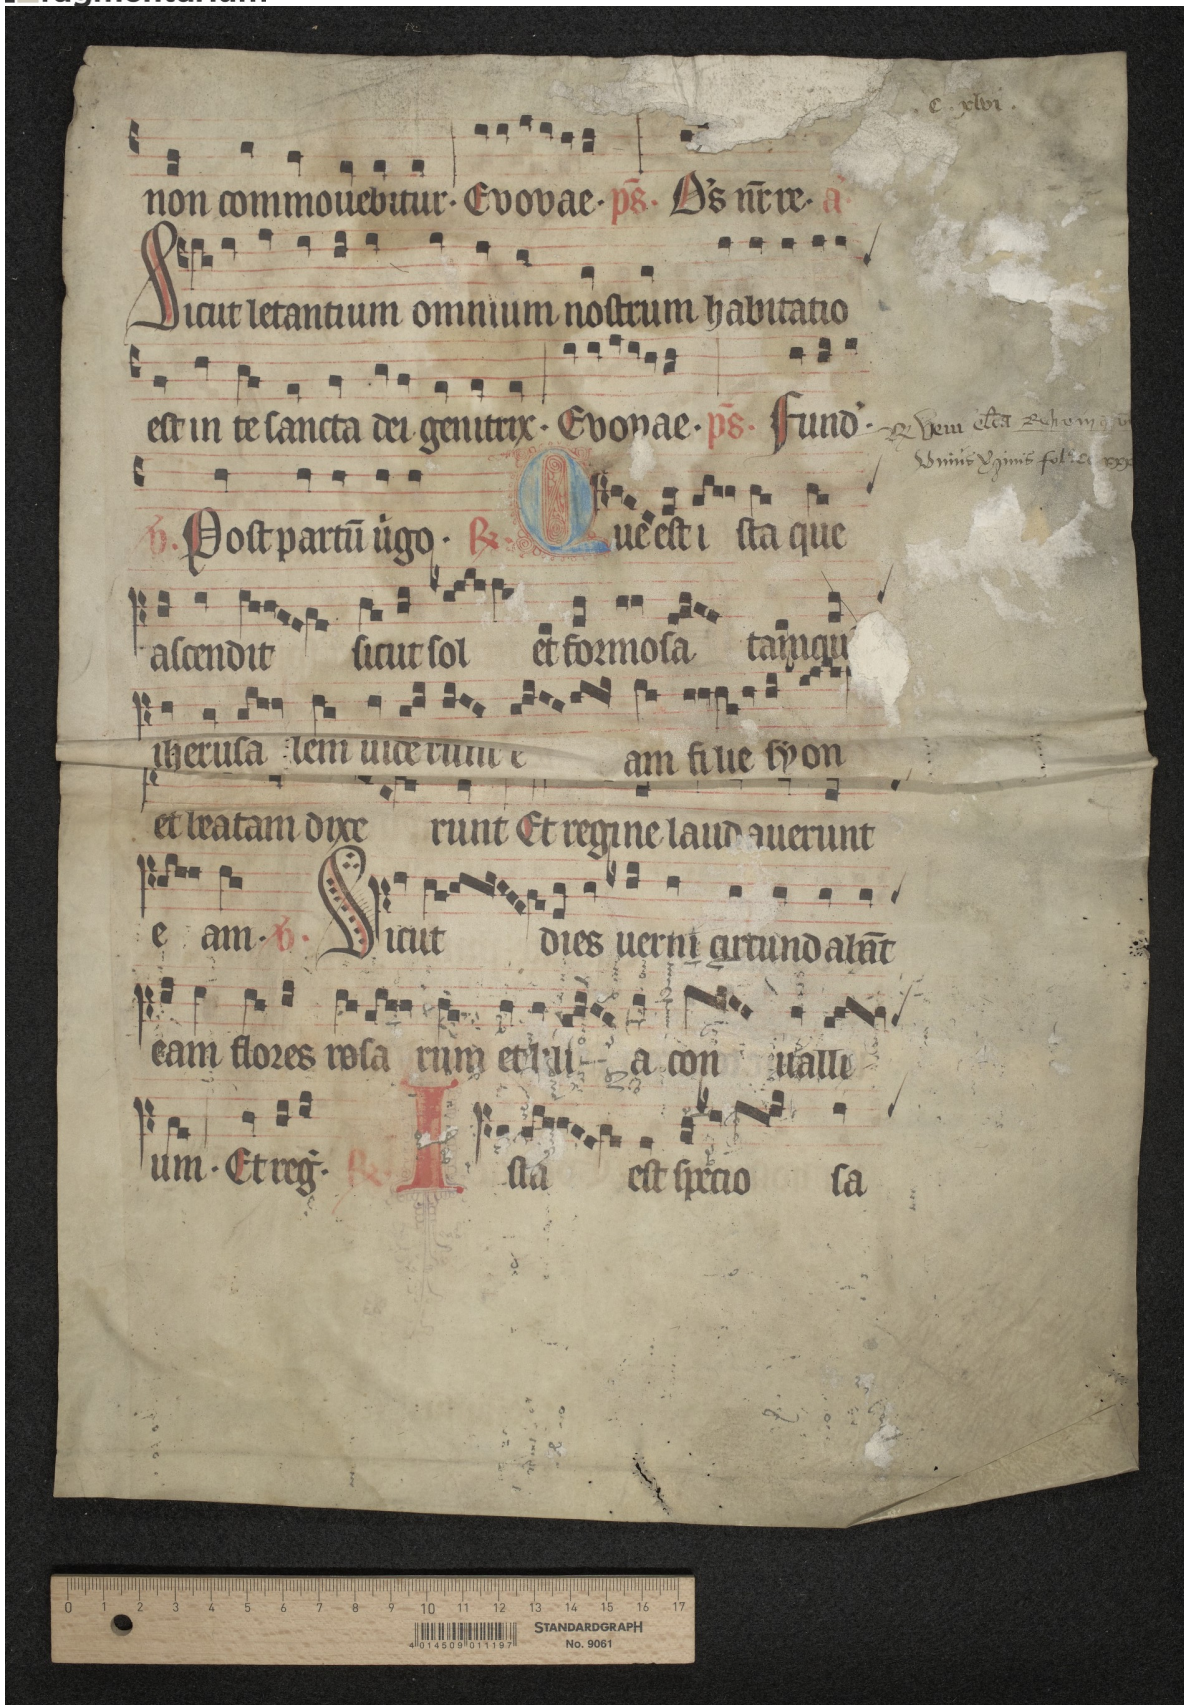 fragmentarium
. c . xlvi .
non commouebitur · Evovae · ps̄ · D's nr̄ re · a
Sicut letantium omnium nostrum habitatio
est in te sancta dei genitrix · Evovae · ps̄ · Fund'
v̄. Post partū u̇go · R̄. Que est i sta que
ascendit sicut sol et formosa tamqu
iherusa lem uiderunt e am fi lie syon
et beatam dixe runt Et regine laudauerunt
e am · v̄ · Sicut dies uerni circundabāt
eam flores rosa rum et lili a con ualli
um · Et reḡ · R̄. Ista est specio sa
0 1 2 3 4 5 6 7 8 9 10 11 12 13 14 15 16 17
STANDARDGRAPH
4 014509 011197
No. 9061